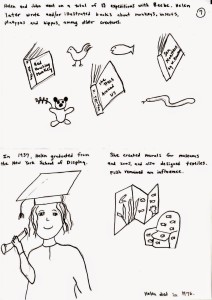 Helen and John went on a total of 13 expeditions with Beebe. Helen
later wrote and/or illustrated books about monkeys, 
platypus and hippos, among other creatures.
In 1939, Helen graduated from
the New York School of Display.
She created murals for museums
and zoos, and also designed textiles.
remained an influence.
Helen died in 1970.